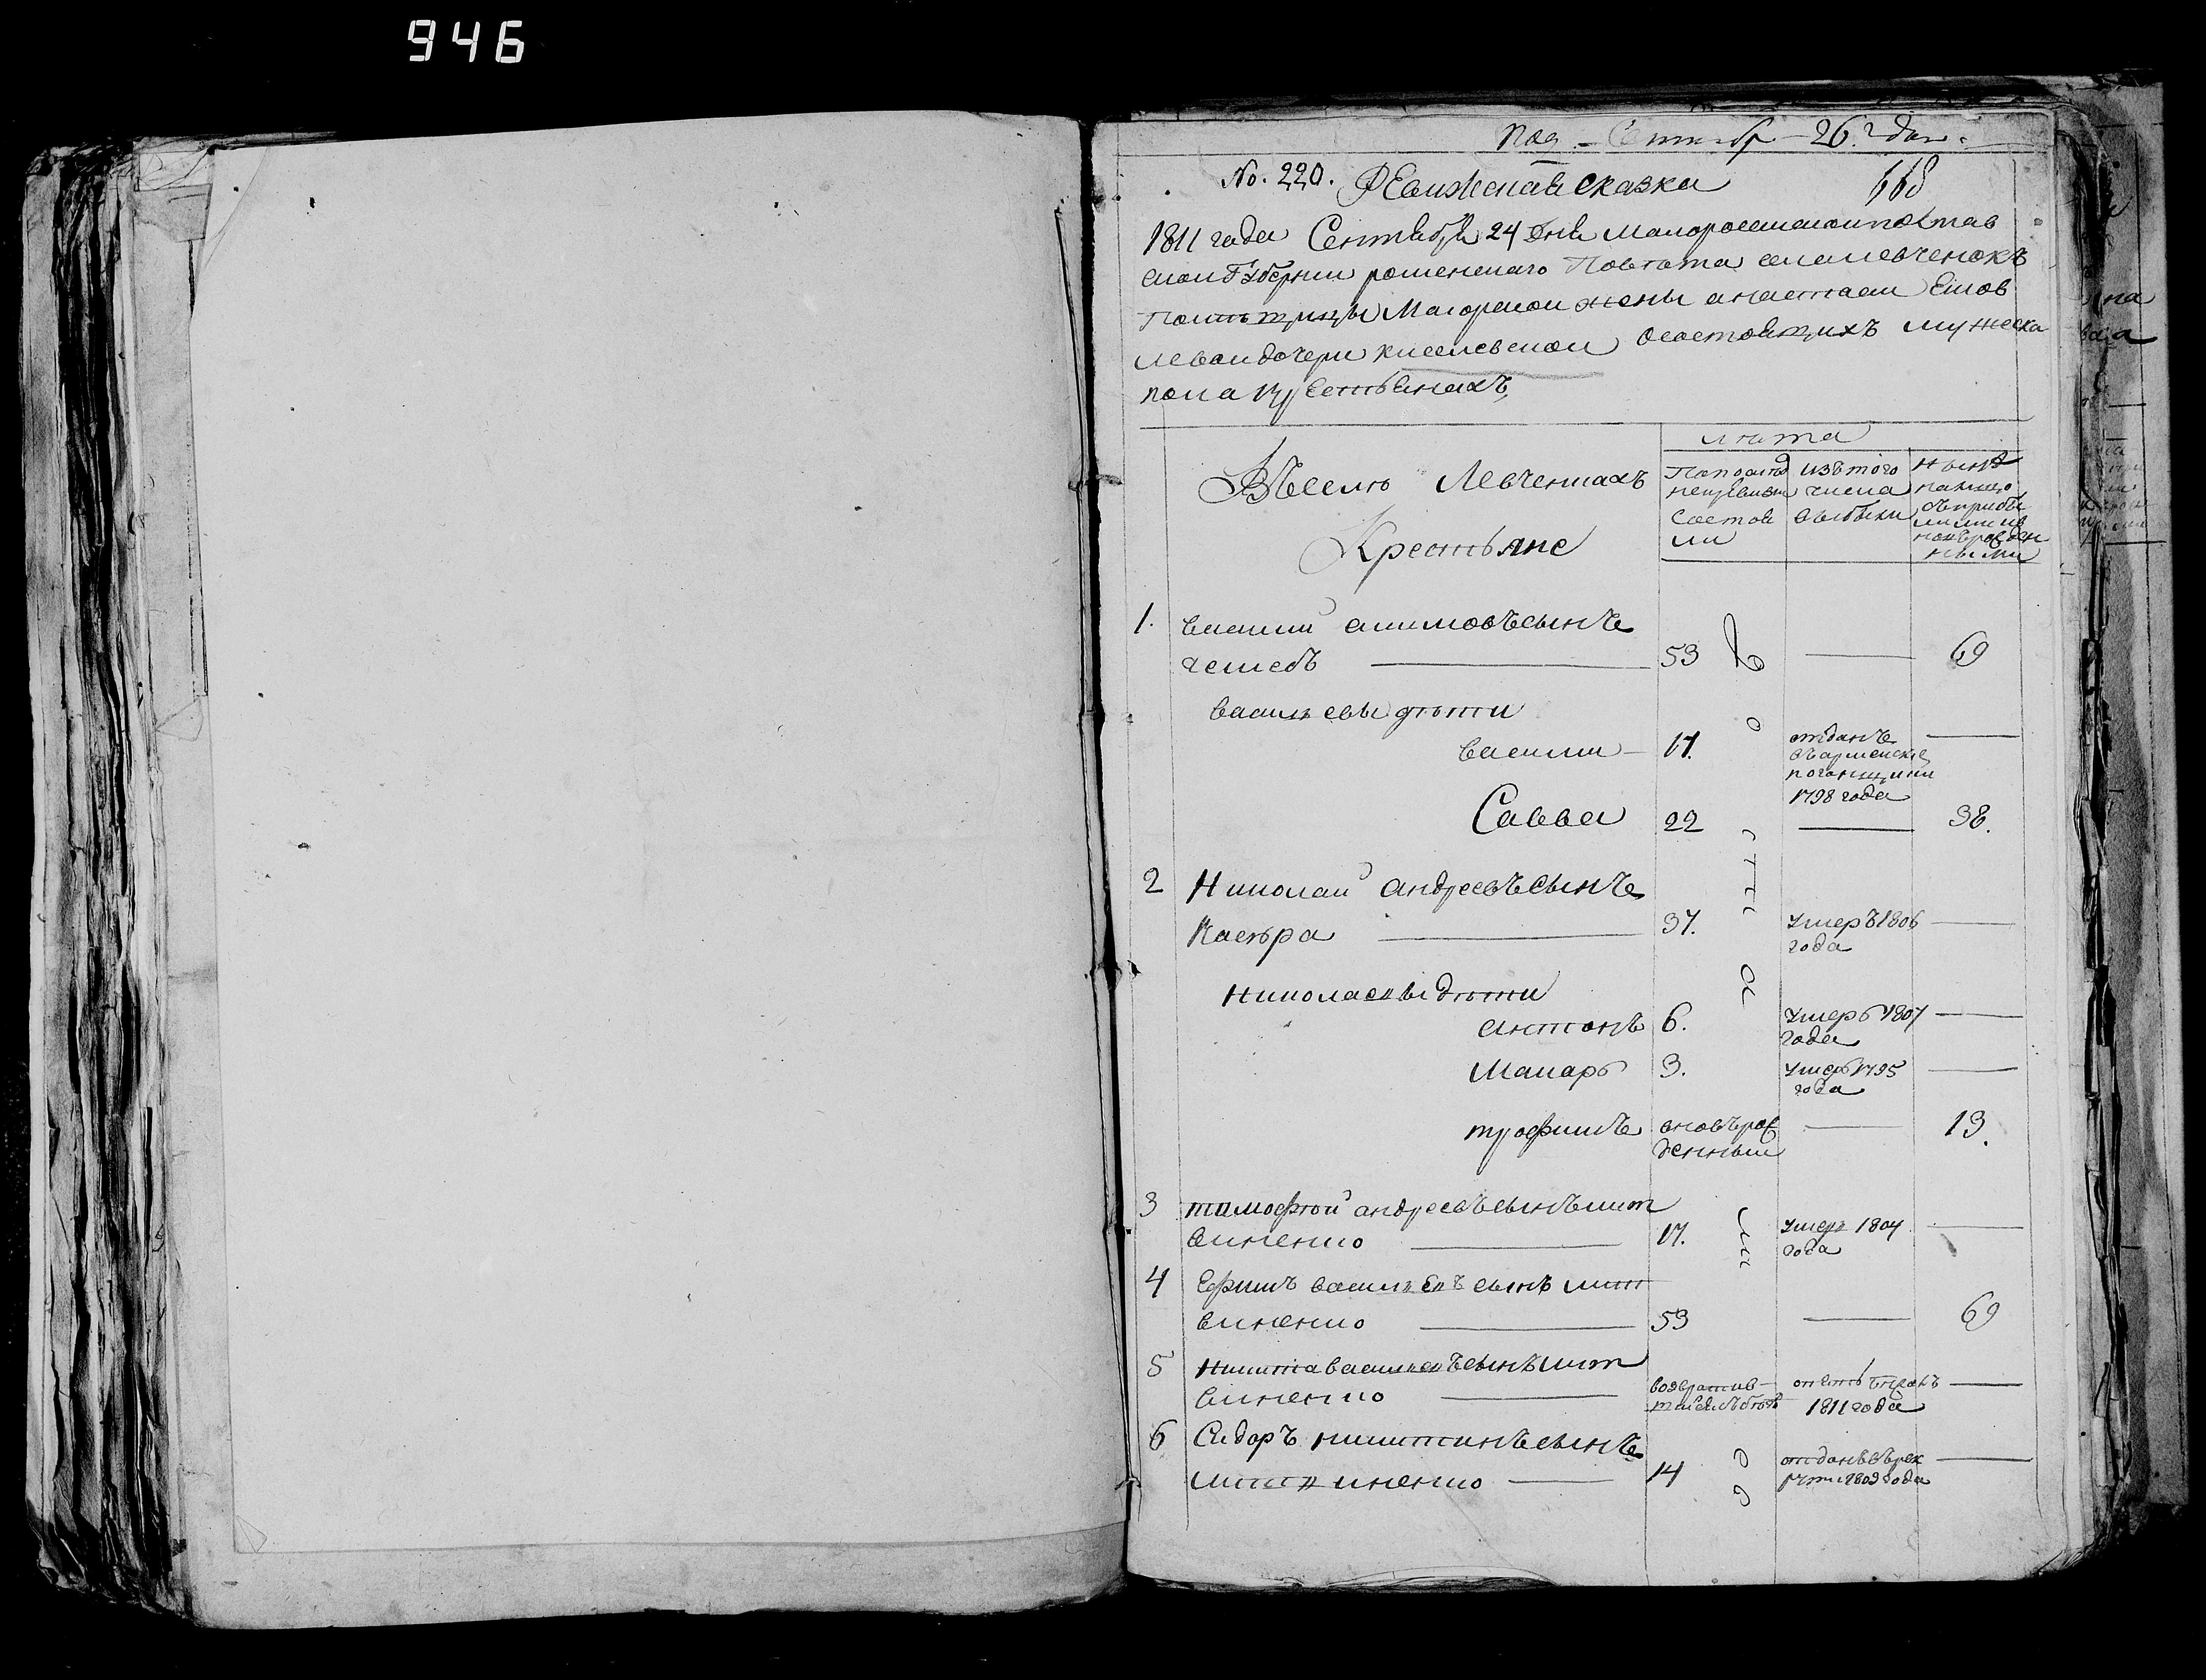 946
26 Дня
No. 220. Ревижская сказка
668
1811 года Сентября 24 дня Малороссискои полтав
скои Губернии роменскаго Повета села левченокъ
Помещицы Маиорскои жены анастасеи
левои дочери киселевскои о состоящихъ мужеска
пола крестьянахъ,
лета
Вселе Левченкахъ
Крестьяне
По последней ревизии состояли
изъ того числа выбыли
ныне налицо
1. василии акимовъ сынъ
53 — 69
васильевы дети
василии — 17. отданъ
въ армейские
погонщики
1798 года —
Савва 22 — 38.
2 Николаи андреевъ сынъ
Касьра — 37. умеръ 1806
года —
Николаевы дети
антонъ 6. умеръ 1807
года —
Макаръ 3. умеръ 1795
года —
трофимъ вновь рож
денныи — 13.
3 тимофеи андреевъ сынъ лит
виненко — 17. умеръ 1804
года —
4 Ефимъ васильевъ сынъ лит
виненко — 53 — 69
5 Никита васильевъ сынъ лит
виненко — возвратив
шися
1811 года —
6 Сидоръ никитинъ сынъ
литвиненко — 14 отданъ въ рек
руты 1809 года —